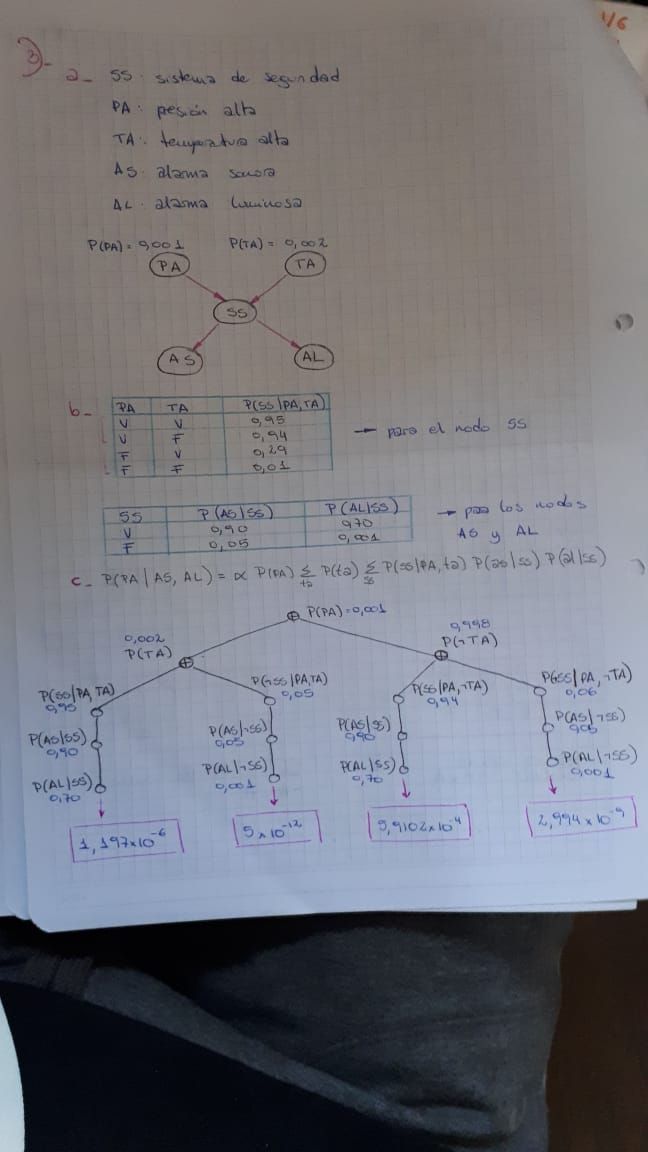 1/6
3)-
a- SS: sistema de seguridad
PA: presión alta
TA: temperatura alta
AS: alarma sonora
AL: alarma luminosa
P(PA) = 0,001 P(TA) = 0,002
PA TA
SS
AS AL
b- PA TA P(SS|PA,TA)
V V 0,95
V F 0,94
F V 0,29
F F 0,01
→ para el nodo SS
SS P(AS|SS) P(AL|SS)
V 0,90 0,70
F 0,05 0,001
→ para los nodos
AS y AL
c- P(PA|AS, AL) = α P(PA) Σ P(ta) Σ P(ss|PA, ta) P(as|ss) P(al|ss)
ta ss
⊕ P(PA)=0,001
0,002 0,998
P(TA) P(¬TA)
P(SS|PA,TA) P(¬SS|PA,TA) P(SS|PA,¬TA) P(¬SS|PA,¬TA)
0,95 0,05 0,94 0,06
P(AS|SS) P(AS|¬SS) P(AS|SS) P(AS|¬SS)
0,90 0,05 0,90 0,05
P(AL|SS) P(AL|¬SS) P(AL|SS) P(AL|¬SS)
0,70 0,001 0,70 0,001
1,197x10⁻⁶ 5x10⁻¹² 5,9102x10⁻⁴ 2,994x10⁻⁹